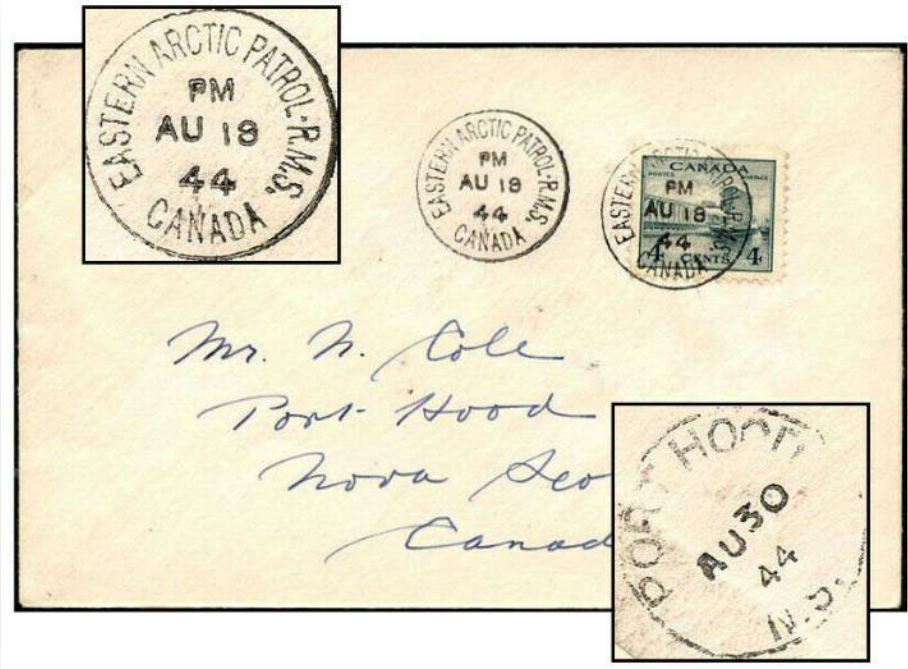 EASTERN ARCTIC PATROL-R.M.S.
PM
AU 18
44
CANADA
EASTERN ARCTIC PATROL-R.M.S.
PM
AU 18
44
CANADA
EASTERN ARCTIC PATROL-R.M.S.
PM
AU 18
44
CANADA
CANADA
POSTES POSTAGE
4 CENTS 4
Mr. N. Cole
Port Hood
Nova Sco
Canad
PORT HOOD
AU 30
44
N.S.